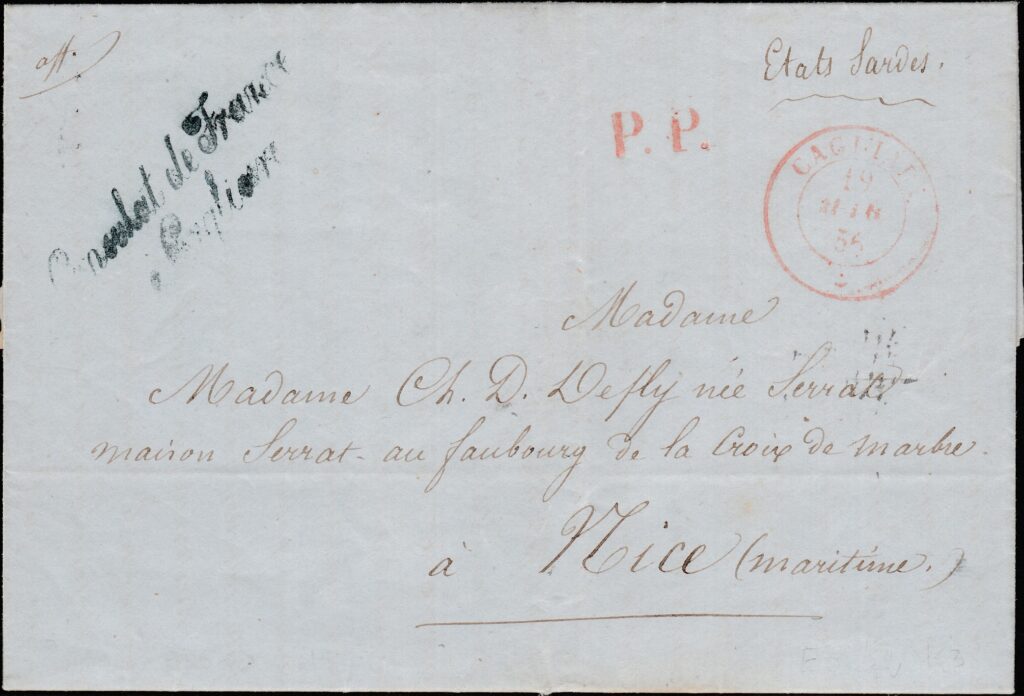 aff.
Etats Sardes.
Consulat de France
Cagliari
P. P.
CAGLIARI
19
56
Madame
Madame Ch. D. Defly née Serrat
maison Serrat au faubourg de la Croix de marbre.
à Nice (maritime.)